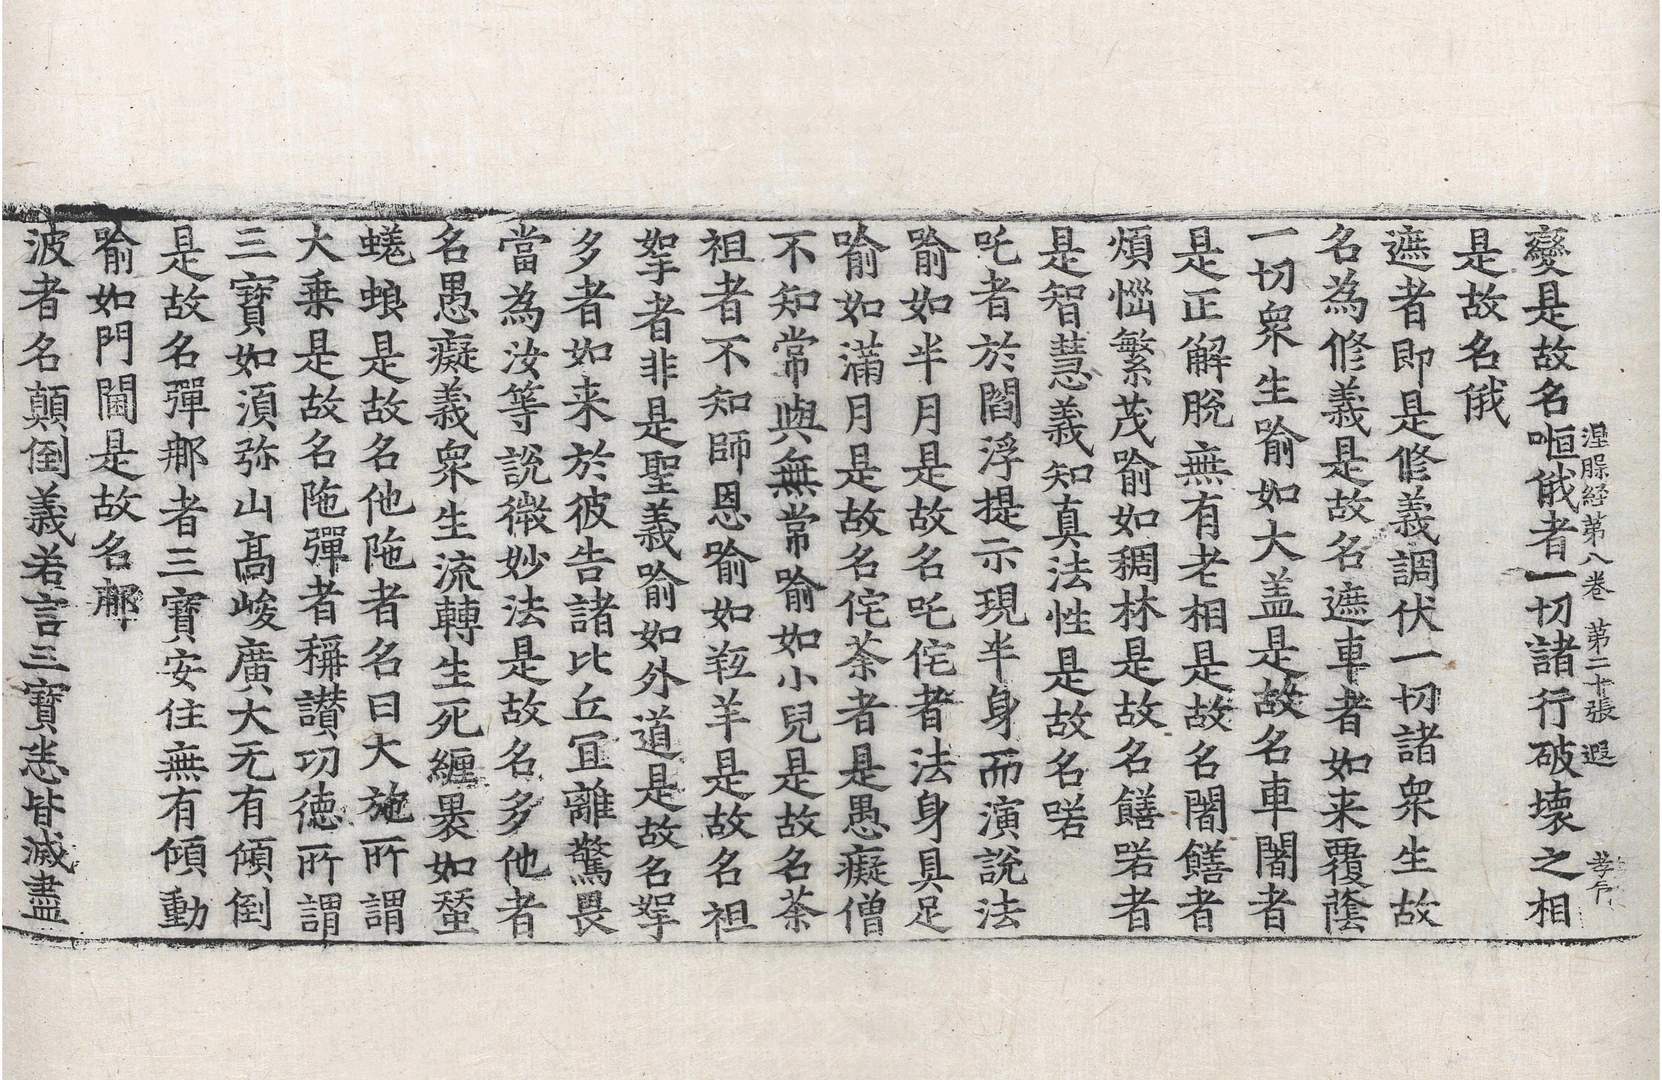 涅脲経第八卷　第二十張　遐　孝存
變是故名㖶俄者一切諸行破壞之相
是故名俄
遮者即是修義調伏一切諸衆生故
名為修義是故名遮車者如来覆蔭
一切衆生喻如大盖是故名車闍者
是正解脫無有老相是故名闍饍者
煩惱繁茂喻如稠林是故名饍喏者
是智慧義知真法性是故名喏
吒者於閻浮提示現半身而演說法
喻如半月是故名吒侘者法身具足
喻如滿月是故名侘荼者是愚癡僧
不知常與無常喻如小兒是故名荼
祖者不知師恩喻如羝羊是故名祖
拏者非是聖義喻如外道是故名拏
多者如来於彼告諸比丘冝離驚畏
當為汝等說微妙法是故名多他者
名愚癡義衆生流轉生死纏裹如蝅
蜣蜋是故名他陁者名曰大施所謂
大乗是故名陁彈者稱讃功德所謂
三寶如湏弥山髙峻廣大无有傾倒
是故名彈𨚗者三寶安住無有傾動
喻如門閫是故名𨚗
波者名顛倒義若言三寶悉皆滅盡